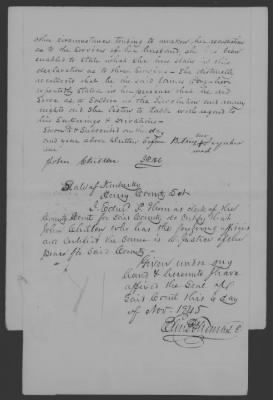 other circumstances tending to awaken her recollection
as to the services of her husband, she has been
enabled to state what she has stated in this
declaration as to those services - She distinctly
recollects that he the said
repeatedly stated in her presence that he did
serve as a soldier in the Revolution and many
nights did she listen to him with regard to
his sufferings & privations -
Sworn to & Subscribed on the day
and year above written before
her
mark
John Chilton Seal
State of Kentucky
Henry County Sct
I Edmd P Thomas clerk of the
County Court for said County do certify that
John Chilton who has the foregoing
and certificate the same is a Justice of the
Peace for said County -
Given under my
hand & hereunto I have
affixed the seal of
said Court this 6 day
of Nov. 1845
Edm P Thomas C